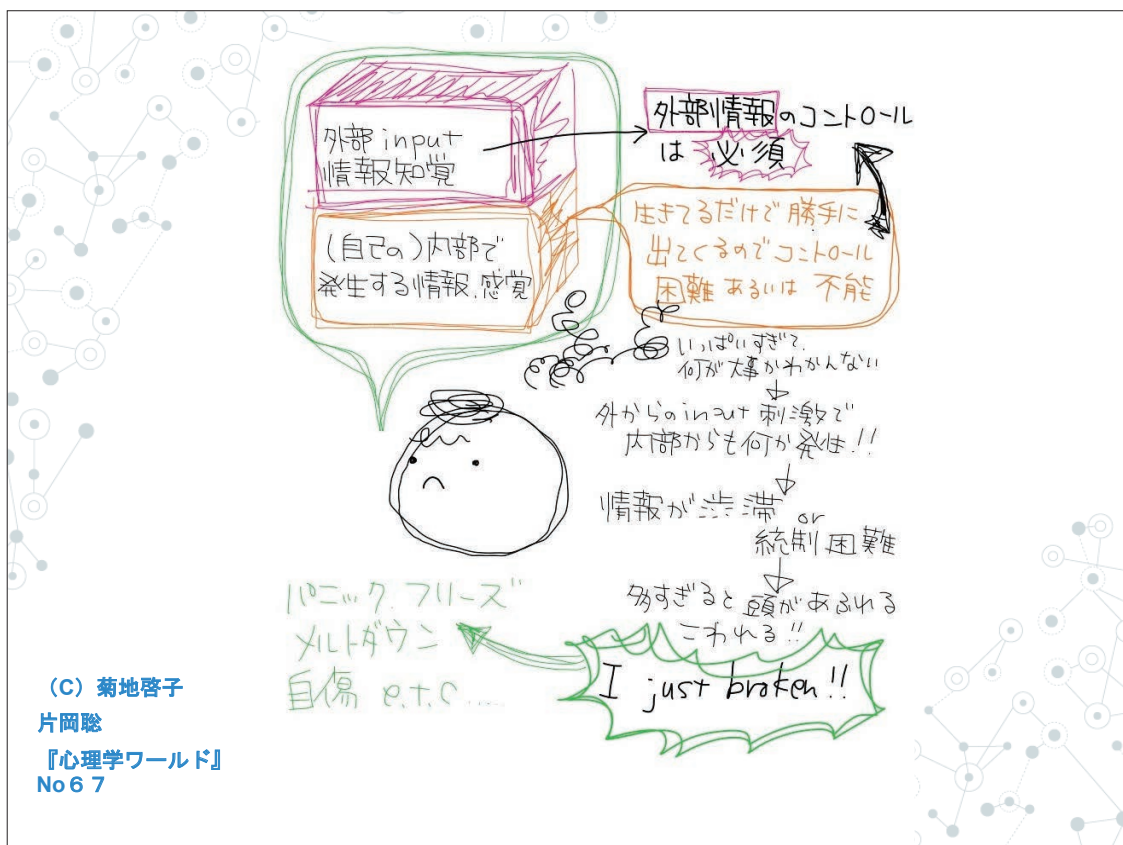 外部input
情報知覚
(自己の)内部で
発生する情報、感覚
外部情報のコントロール
は 必須
生きてるだけで勝手に
出てくるのでコントロール
困難あるいは 不能
いっぱいすぎて、
何が大事かわかんない
外からのinput 刺激で
内部からも何か発生!!
情報が渋滞
or
統制困難
多すぎると頭があふれる
こわれる!!
I just broken!!
パニック、フリーズ
メルトダウン
自傷 e.t.c.....
(C)菊地啓子
片岡聡
『心理学ワールド』
No67